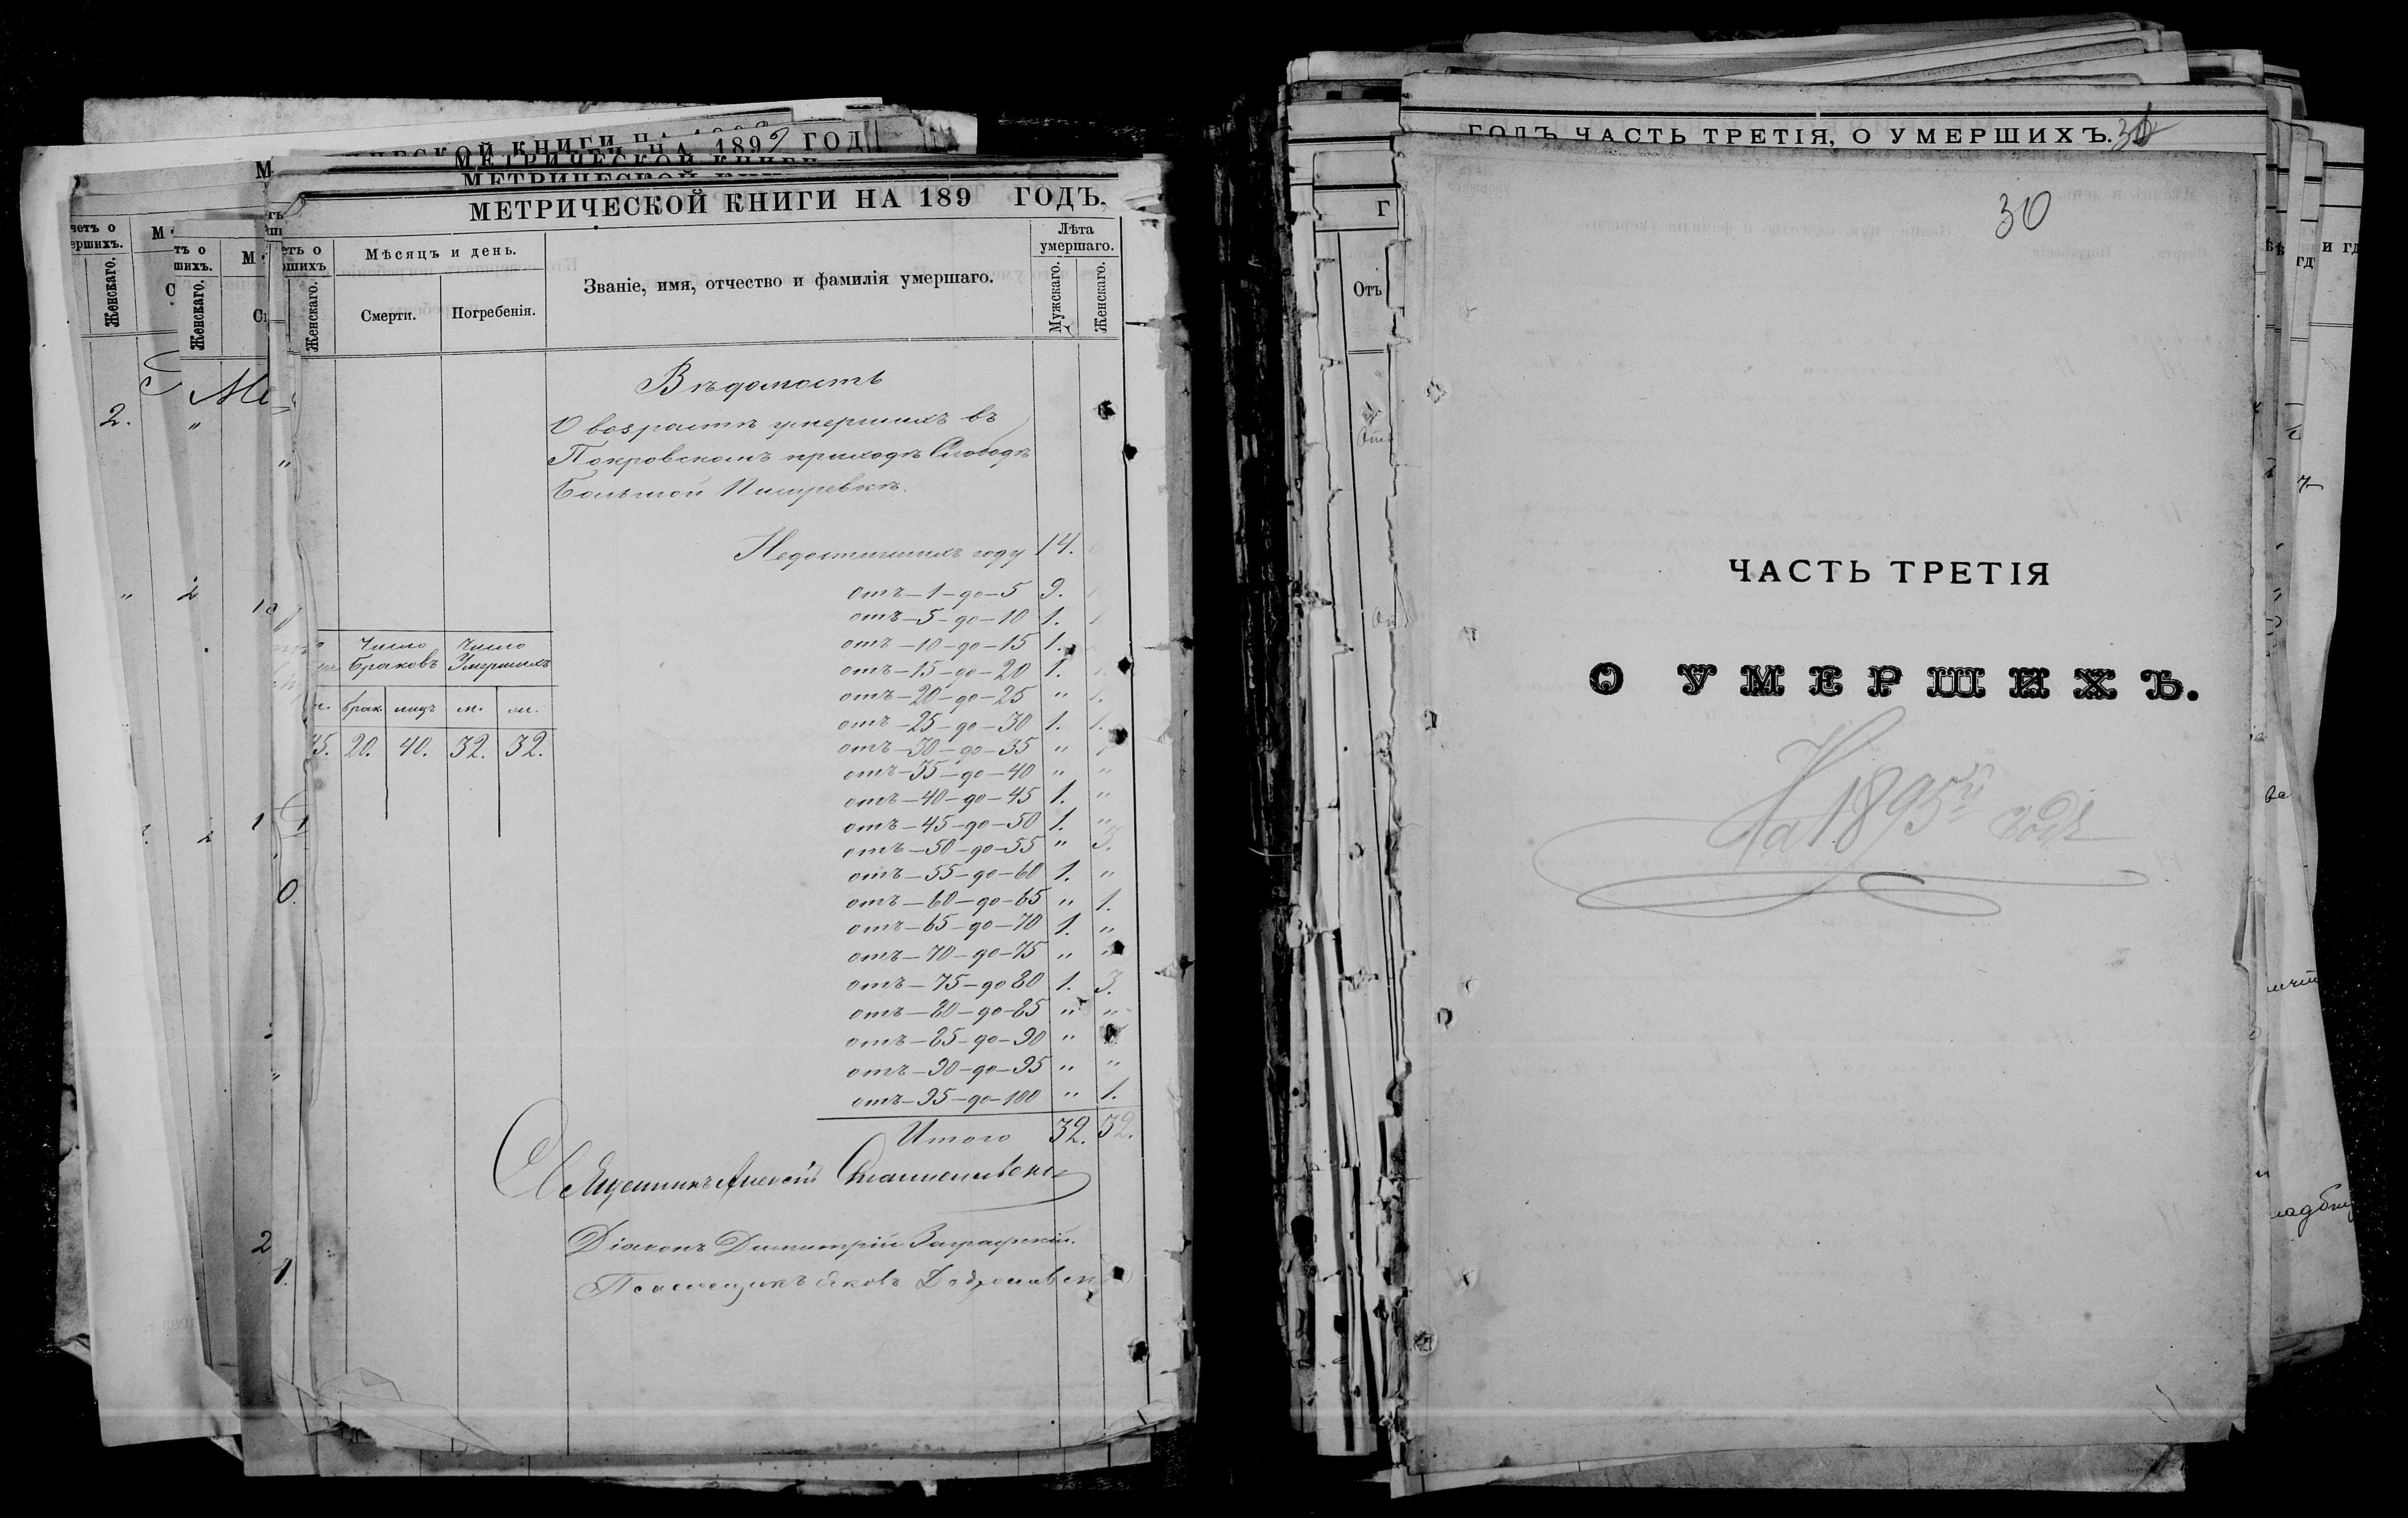 МЕТРИЧЕСКОЙ КНИГИ НА 189 ГОДЪ.
Мѣсяцъ и день.
Смерти.
Погребенія.
Званіе, имя, отчество и фамилія умершаго.
Лѣта умершаго.
Мужскаго.
Женскаго.
Вѣдомость
О возрастѣ умершихъ въ
Покровскомъ приходѣ Слободѣ
Большой Писаревкѣ.
Недостигшихъ году 14.
отъ—1—до—5 9.
отъ—5—до—10 1.
отъ—10—до—15 1.
отъ—15—до—20 1.
отъ—20—до—25 " 1.
отъ—25—до—30 1. 1.
отъ—30—до—35 "
отъ—35—до—40 " "
отъ—40—до—45 1. "
отъ—45—до—50 1. "
отъ—50—до—55 " 3.
отъ—55—до—60 1. "
отъ—60—до—65 " 1.
отъ—65—до—70 1. "
отъ—70—до—75 " "
отъ—75—до 80 1. 3.
отъ—80—до—85 " "
отъ—85—до—90 "
отъ—90—до—95 " "
отъ—95—до—100 " 1.
Итого 32. 32.
Число Браковъ
Число Умершихъ
брак. лицъ м. ж.
45. 20. 40. 32. 32.
Священникъ Алексій Станиславскій
Діаконъ Димитрій Заграфскій.
Псаломщикъ Яковъ
ГОДЪ ЧАСТЬ ТРЕТІЯ, О УМЕРШИХЪ.
30
ЧАСТЬ ТРЕТІЯ
О УМЕРШИХЪ.
На 1895й годъ